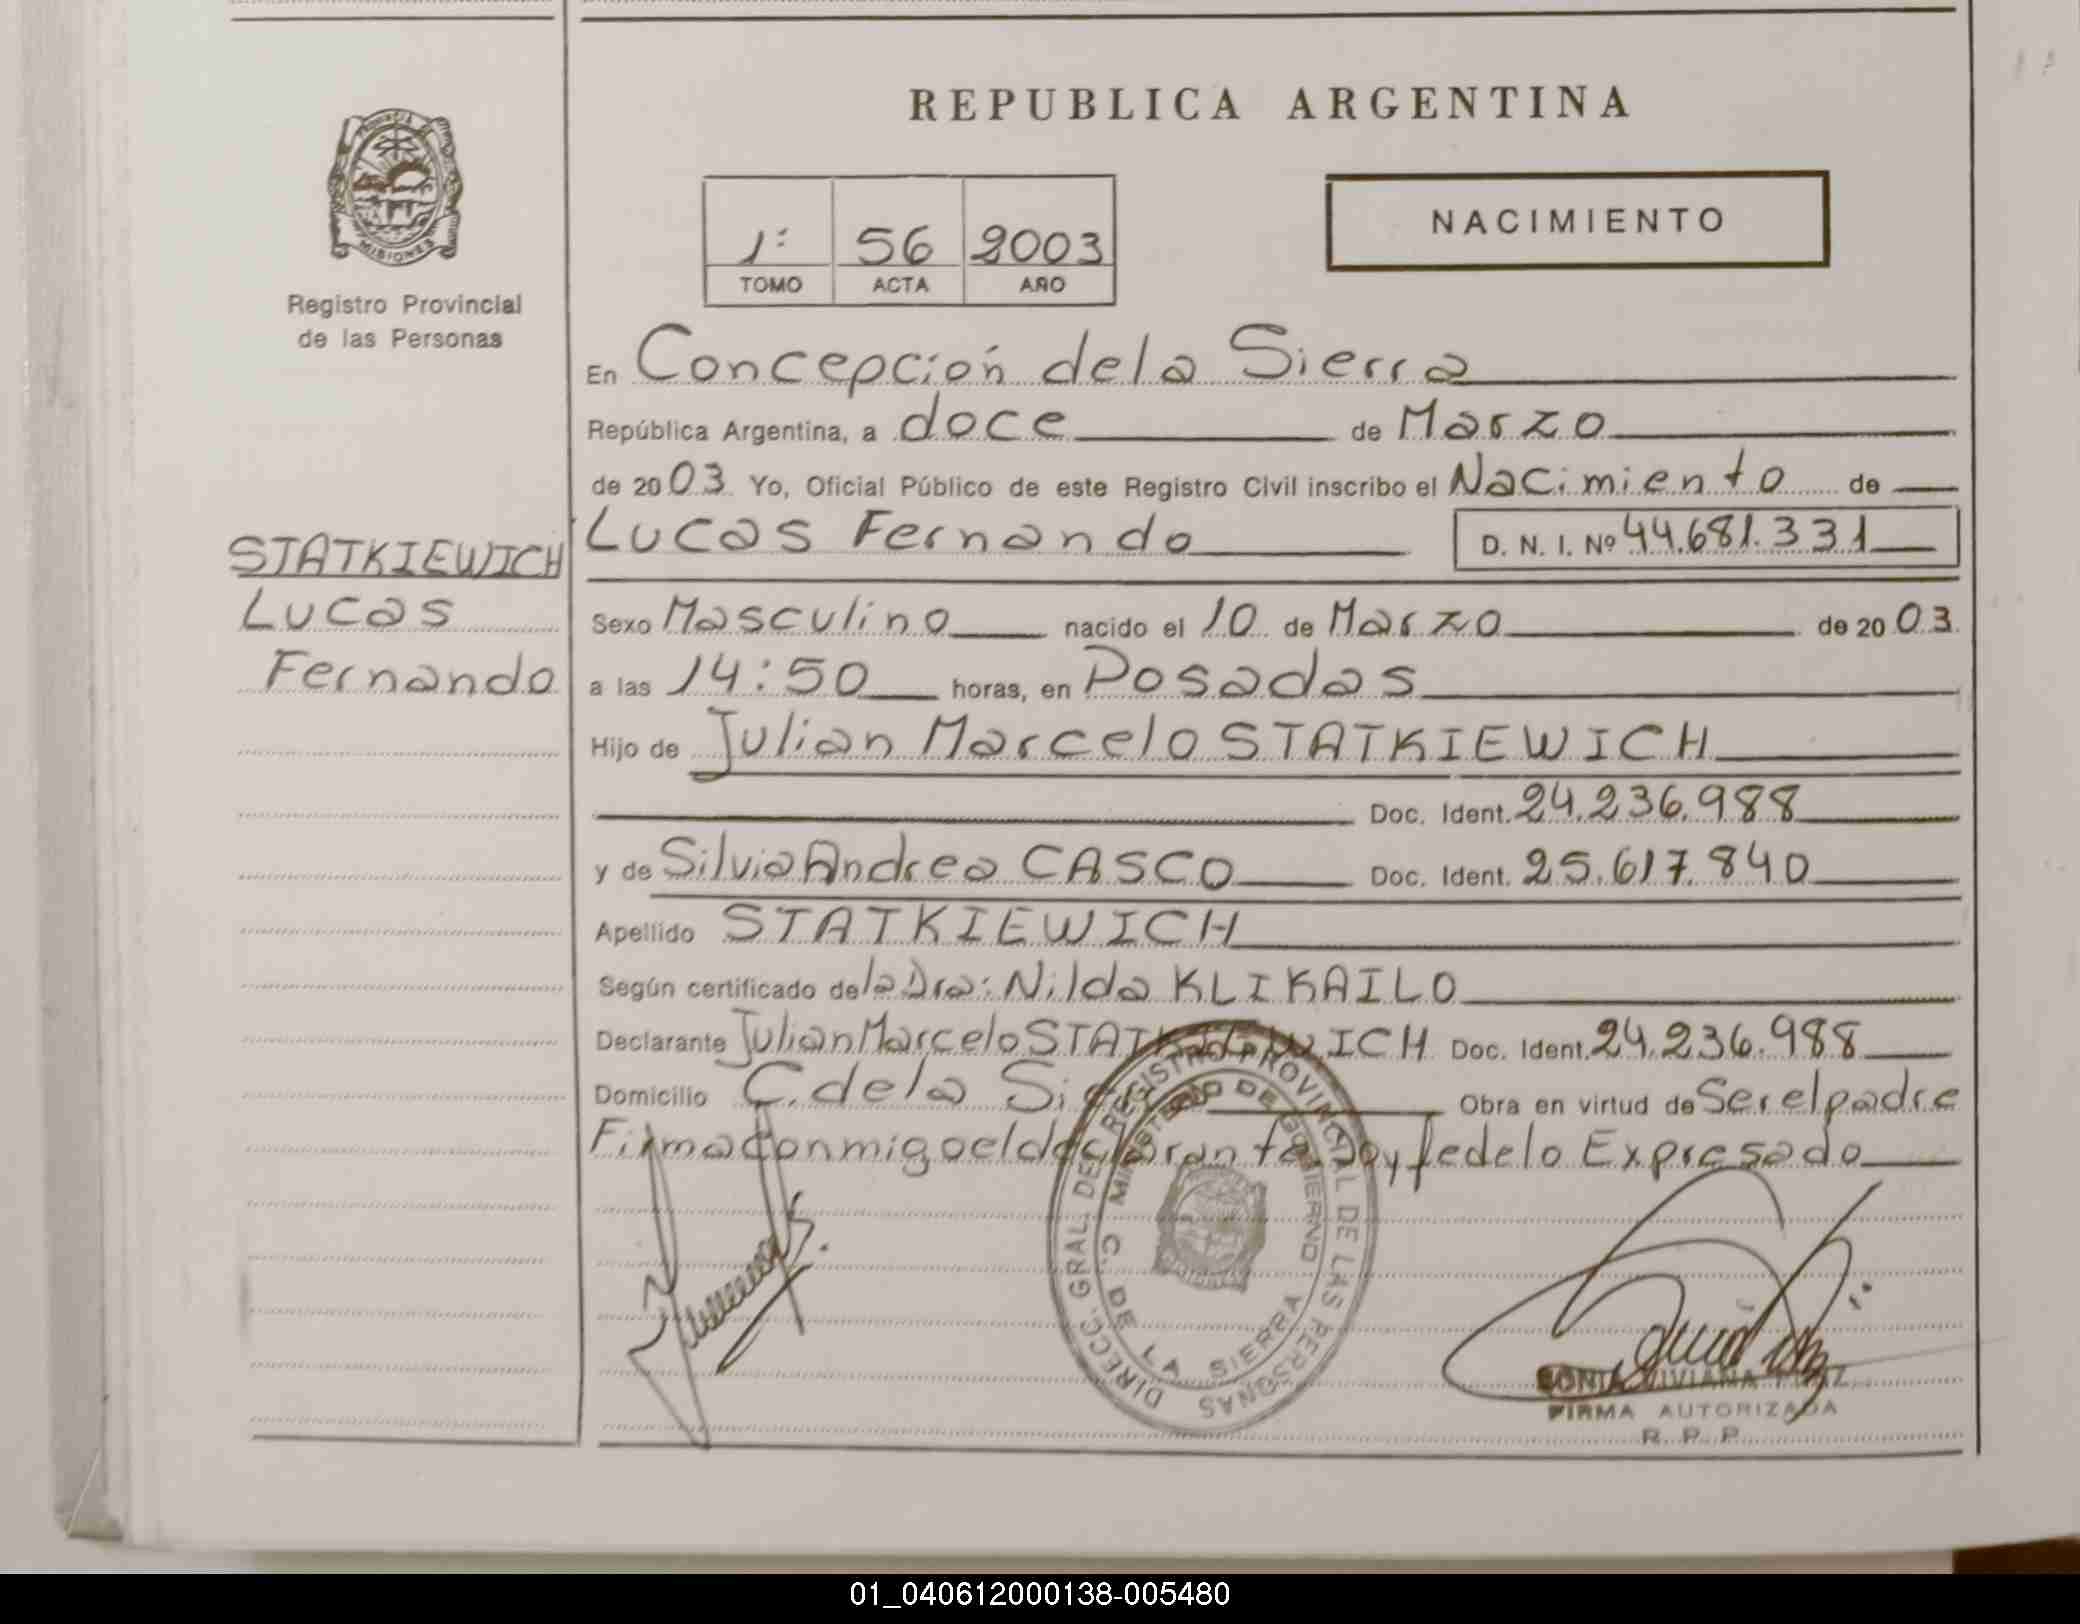 REPUBLICA ARGENTINA
PROVINCIA DE
MISIONES
Registro Provincial
de las Personas
NACIMIENTO
1º 56 2003
TOMO ACTA AÑO
En Concepción dela Sierra
República Argentina, a doce de Marzo
de 2003 Yo, Oficial Público de este Registro Civil inscribo el Nacimiento de
Lucas Fernando D. N. I. Nº 44.681.331
STATKIEWICH
Lucas
Fernando
Sexo Masculino nacido el 10 de Marzo de 2003
a las 14:50 horas, en Posadas
Hijo de Julian Marcelo STATKIEWICH
Doc. Ident. 24.236.988
y de Silvia Andrea CASCO Doc. Ident. 25.617.840
Apellido STATKIEWICH
Según certificado de la Dra: Nilda KLIKAILO
Declarante Julian Marcelo STATKIEWICH Doc. Ident. 24.236.988
Domicilio C. de la Sierra Obra en virtud de Ser el padre
Firma conmigo el declarante. Doy fe de lo Expresado
DIRECC. GRAL. DEL REGISTRO PROVINCIAL DE LAS PERSONAS
MINISTERIO DE GOBIERNO
C. DE LA SIERRA
SONIA VIVIANA
FIRMA AUTORIZADA
R. P. P.
01_040612000138-005480